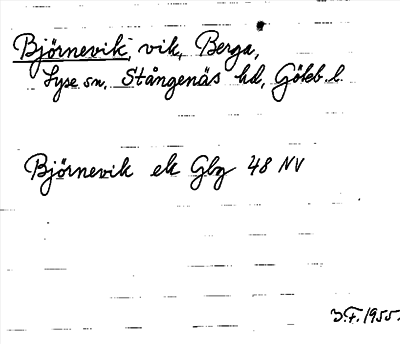 Björnevik, vik, Berga,
Lyse sn, Stångenäs hd, Göteb. l.
Björnevik ek Gbg 48 NV
3.F.1955.